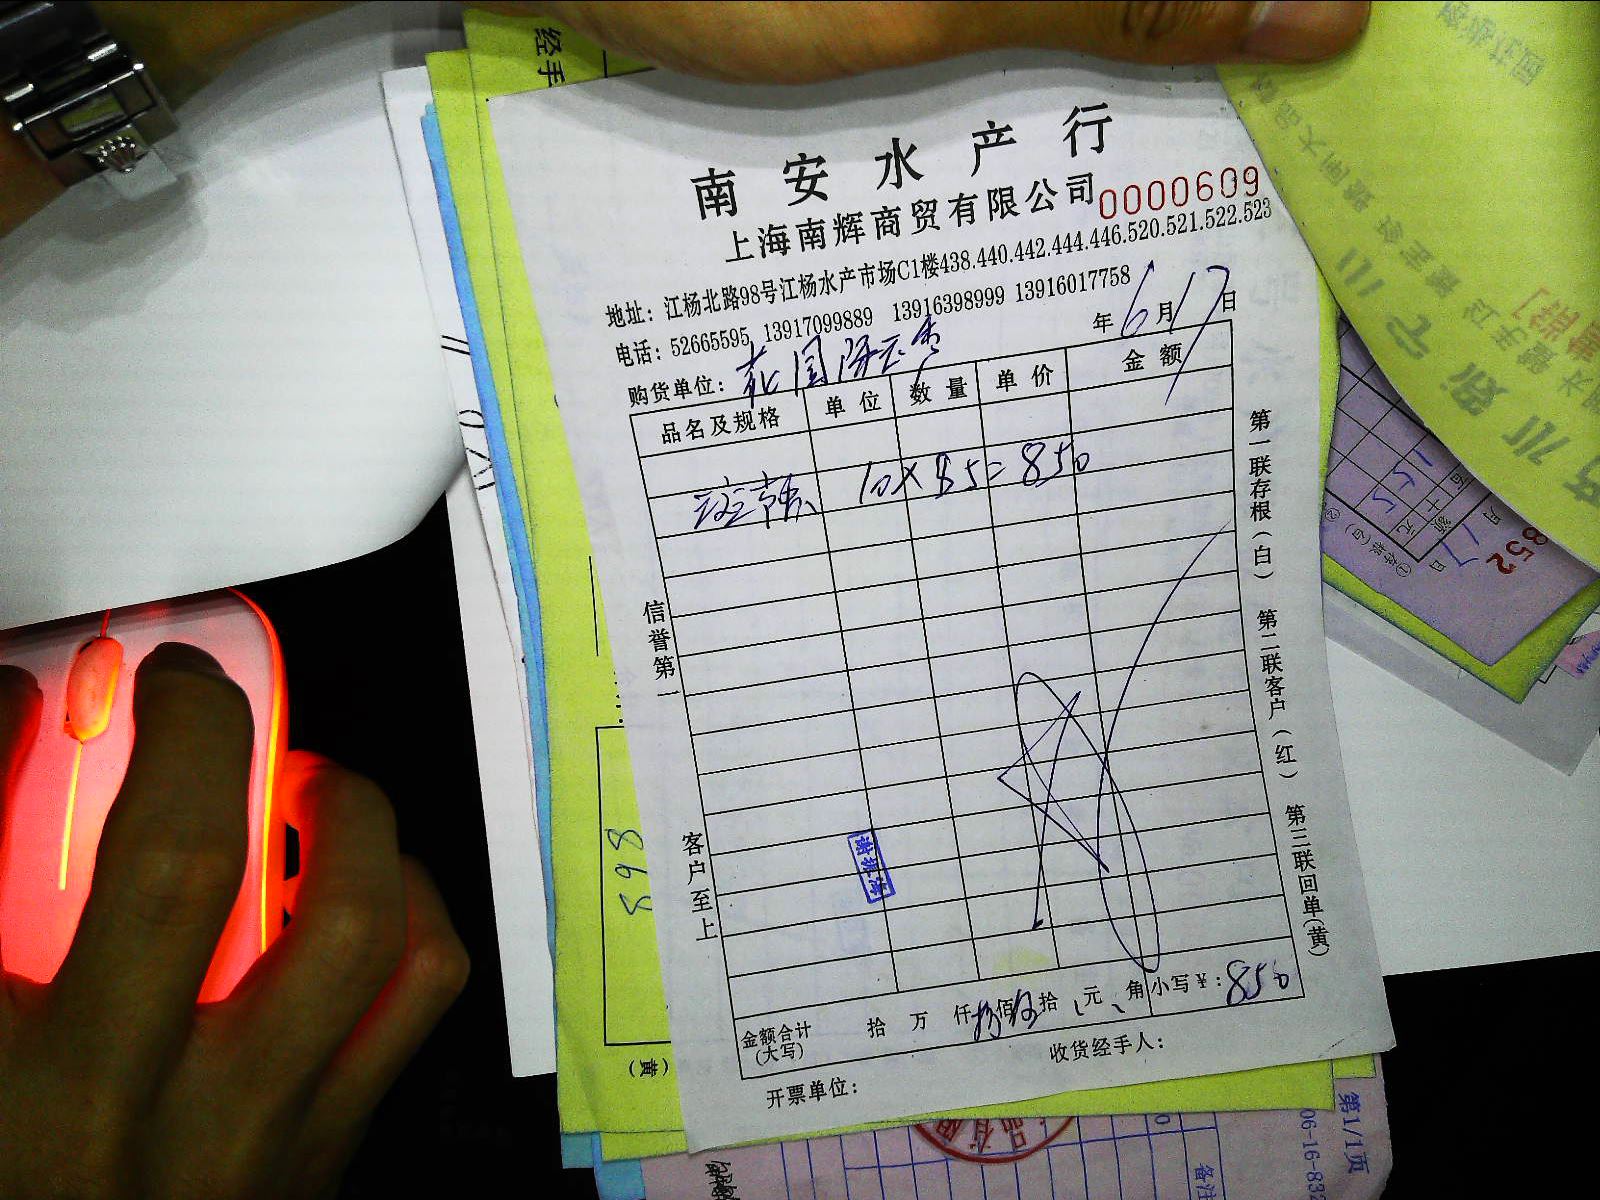 南安水产行
上海南辉商贸有限公司 0000609
地址：江杨北路98号江杨水产市场C1楼438.440.442.444.446.520.521.522.523
电话：52665595 13917099889 13916398999 13916017758
年6月17日
购货单位：
品名及规格 单位 数量 单价 金额
10×85=850
信誉第一
客户至上
第一联存根（白）
第二联客户（红）
第三联回单（黄）
金额合计（大写） 拾 万 仟 捌佰伍拾 元 角 小写￥：850
收货经手人：
开票单位：
经手
598
（黄）
852
第1/1页
备注